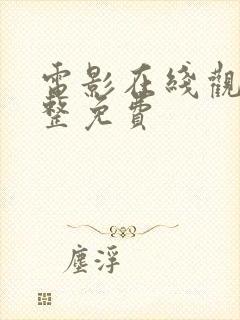 電影在綫觀
整免費
塵浮